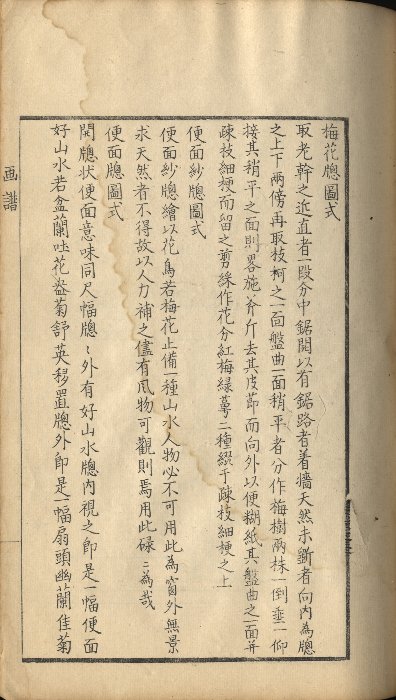 梅花牕圖式
取老幹之近直者一段分中鋸開以有鋸路者着墻天然未斵者向内為牕
之上下兩傍再取枝柯之一面盤曲一面稍平者分作梅樹兩株一倒垂一仰
接其稍平之面則畧施斧斤去其皮莭而向外以便糊紙其盤曲之一面并
疎枝細梗而留之剪綵作花分紅梅緑萼二種綴于疎枝細梗之上
便面紗牕圖式
便面紗牕繪以花鳥若梅花止備一種山水人物必不可用此為窗外無景
求天然者不得故以人力補之儘有風物可觀則焉用此碌〻為哉
便面牕圖式
開牕状便面意味同尺幅牕〻外有好山水牕内視之即是一幅便面
好山水若盆蘭吐花盎菊舒英移置牕外即是一幅扇頭幽蘭佳菊
画譜